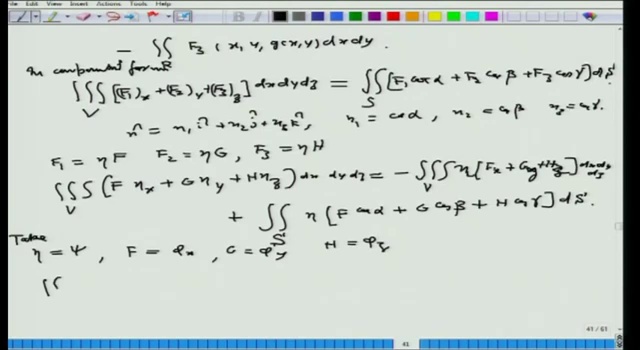 File Edit View Insert Actions Tools Help
- ∬_R F₃(x, y, g(x,y)) dx dy.
In component form
∭_V [(F₁)_x + (F₂)_y + (F₃)_z] dx dy dz = ∬_S [F₁ cos α + F₂ cos β + F₃ cos γ] dS
n̂ = n₁ î + n₂ ĵ + n₃ k̂, n₁ = cos α, n₂ = cos β n₃ = cos γ.
F₁ = ηF F₂ = ηG, F₃ = ηH
∭_V (F η_x + G η_y + H η_z) dx dy dz = - ∭_V η [F_x + G_y + H_z] dx dy dz
+ ∬_S η [F cos α + G cos β + H cos γ] dS.
Take
η = ψ, F = φ_x, G = φ_y H = φ_z
∬
41 / 61
41